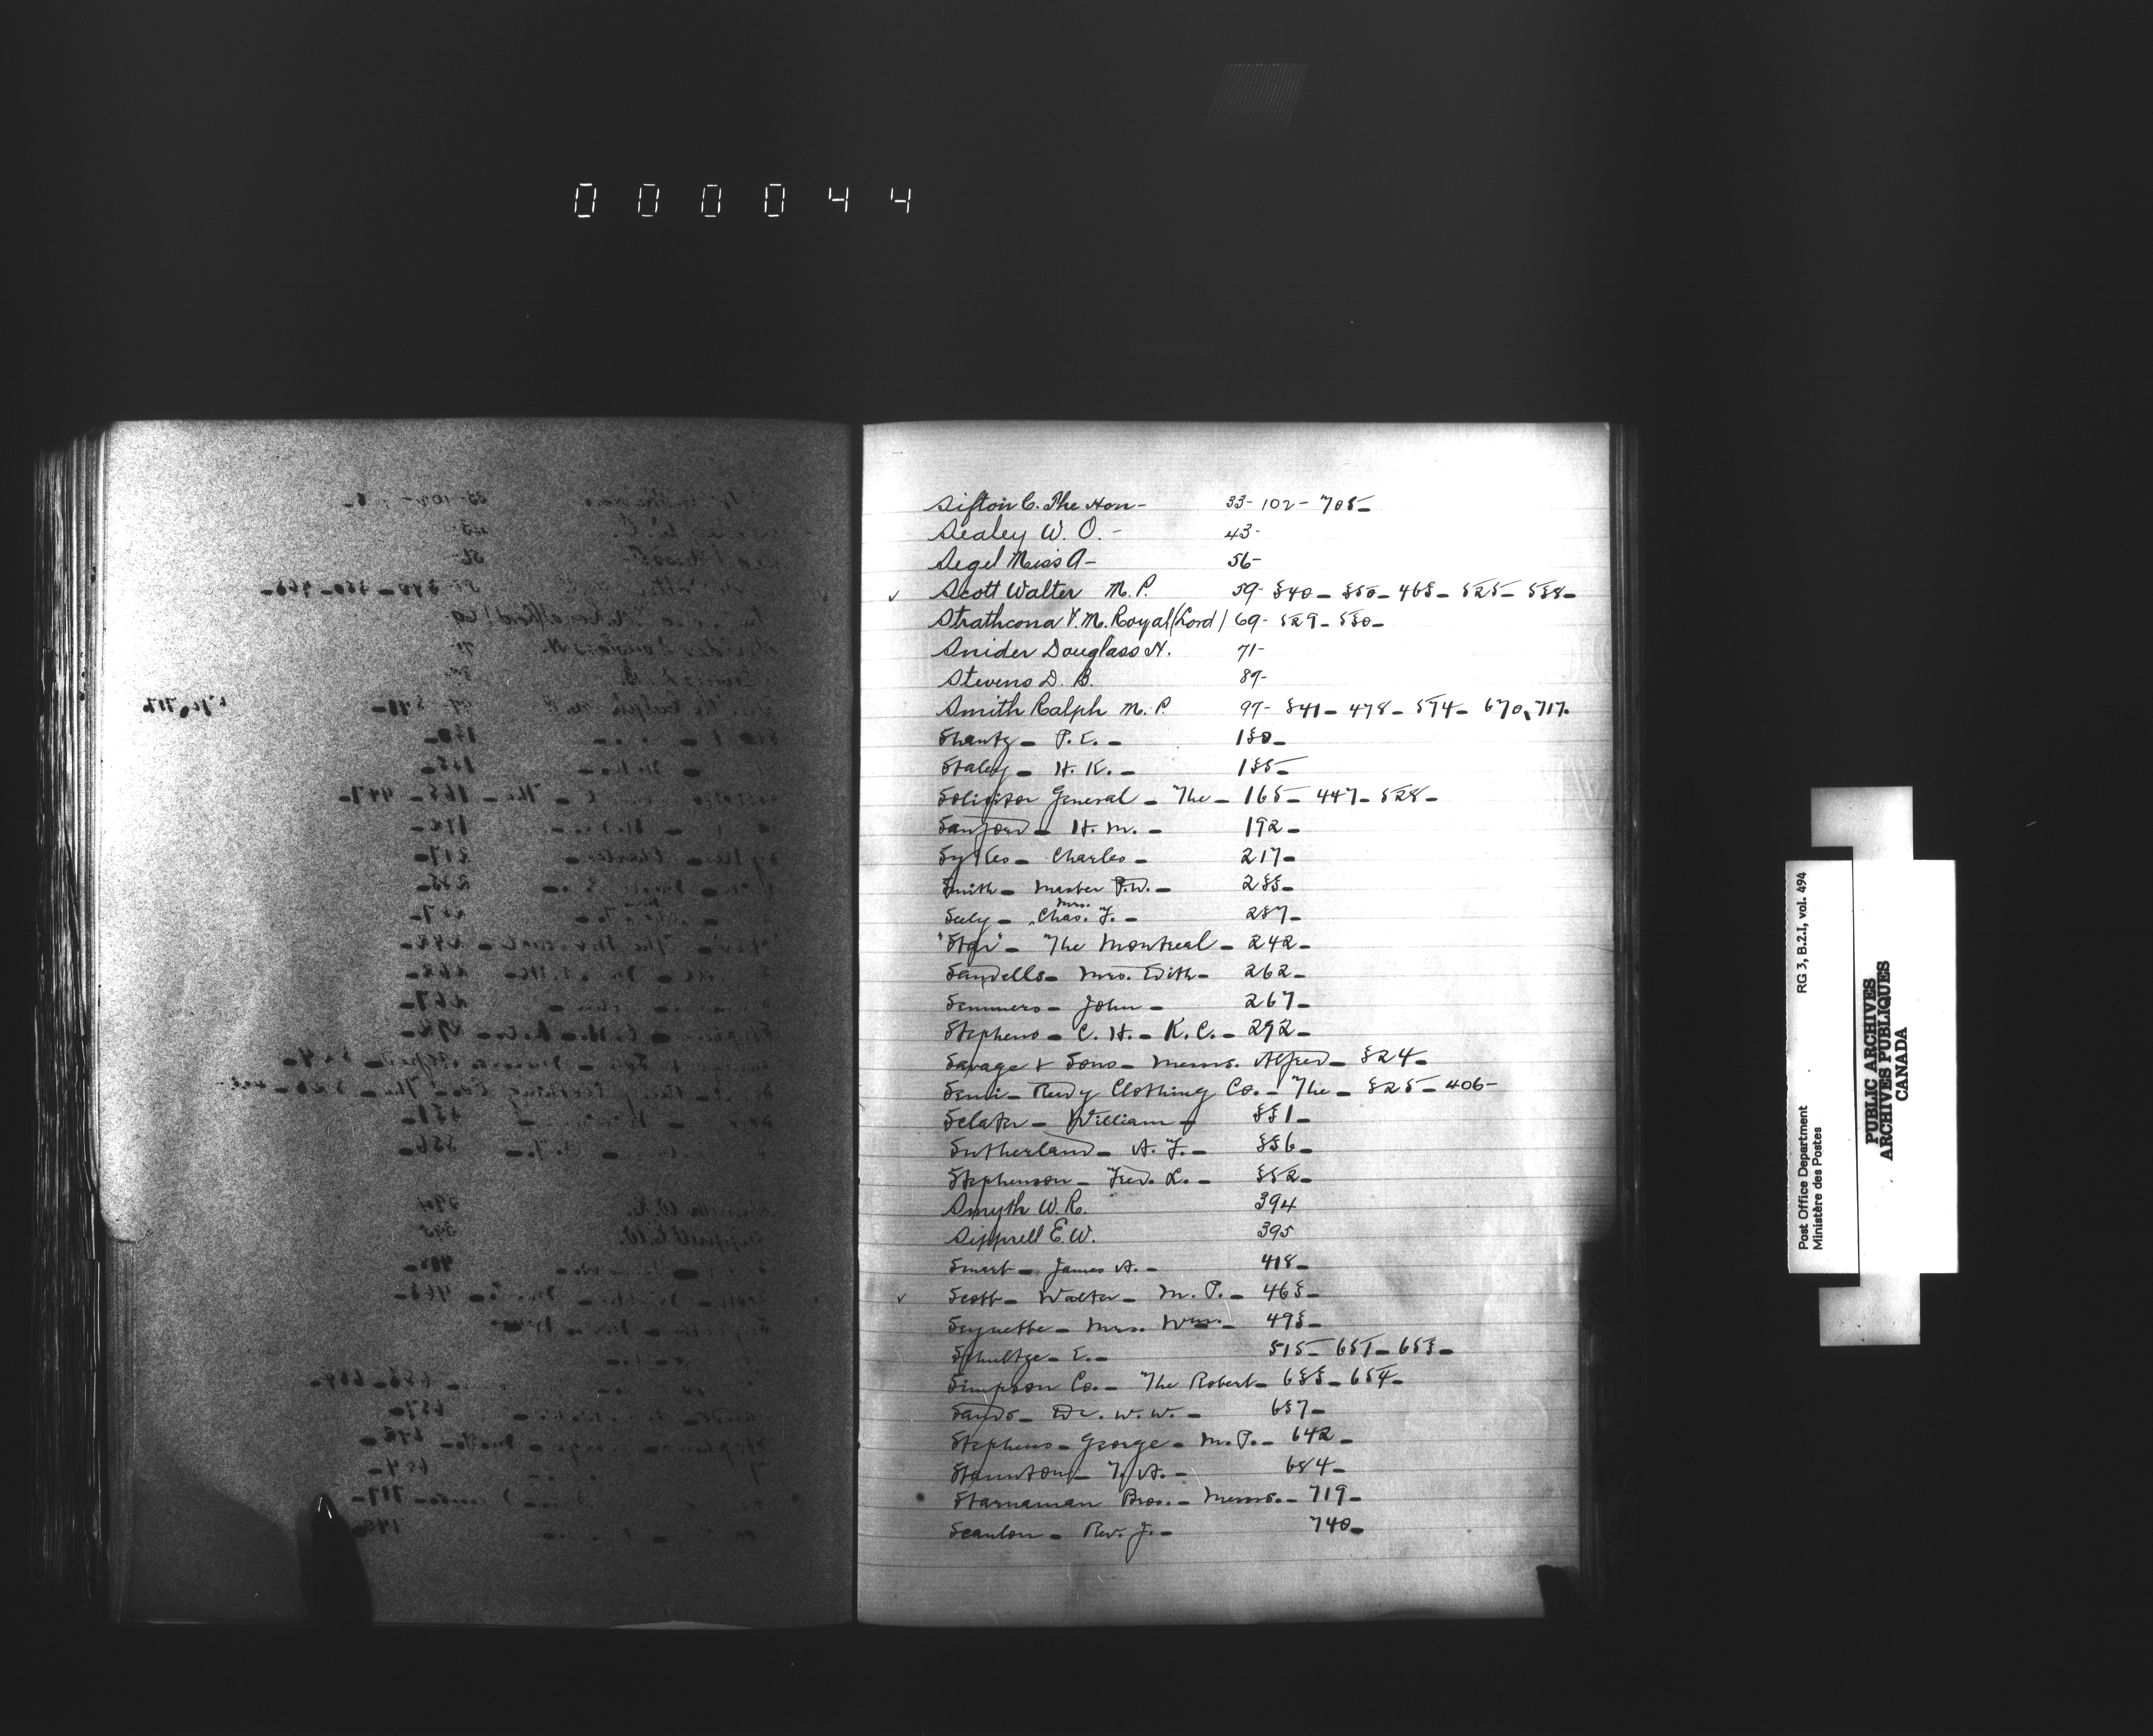 000044
Sifton C. The Hon- 33-102-705-
Sealey W. O.- 43-
Segel Miss A- 56-
✓ Scott Walter M.P. 59-340-350-463-525-538-
Strathcona & M. Royal (Lord) 69-529-530-
Snider Douglass N. 71-
Stevens D. B. 89-
Smith Ralph M.P. 97-341-478-574-670,717-
Shantz- P. E.- 130-
Staley- H. K.- 135-
Solicitor General- The- 165-447-528-
Sanford- H. M.- 192-
Sykes- Charles- 217-
Smith- Master P.W.- 233-
Seely- Mrs. Chas. F.- 237-
"Star"- The Montreal- 242-
Sandells- Mrs. Edith- 262-
Semmers- John- 267-
Stephens- C. H.- K.C.- 292-
Savage & Sons- Messrs. Alfred- 324-
Semi-Ready Clothing Co.- The- 325-406-
Sclater- William- 331-
Sutherland- A. F.- 336-
Stephenson- Fred. L.- 352-
Smyth W. R. 394
Sipprell E. W. 395
Smart- James A.- 418-
✓ Scott- Walter- M. P.- 463-
Seynette- Mrs. Wm.- 493-
Schultze- E.- 515-651-653-
Simpson Co.- The Robert- 633-654-
Sands- Dr. W. W.- 637-
Stephens- George- M.P.- 642-
Staunton- A.- 684-
Starnaman Bros.- Messrs.- 719-
Scanlon- Rev. J.- 740-
Post Office Department RG 3, B.2.I, vol. 494
Ministère des Postes
PUBLIC ARCHIVES
ARCHIVES PUBLIQUES
CANADA